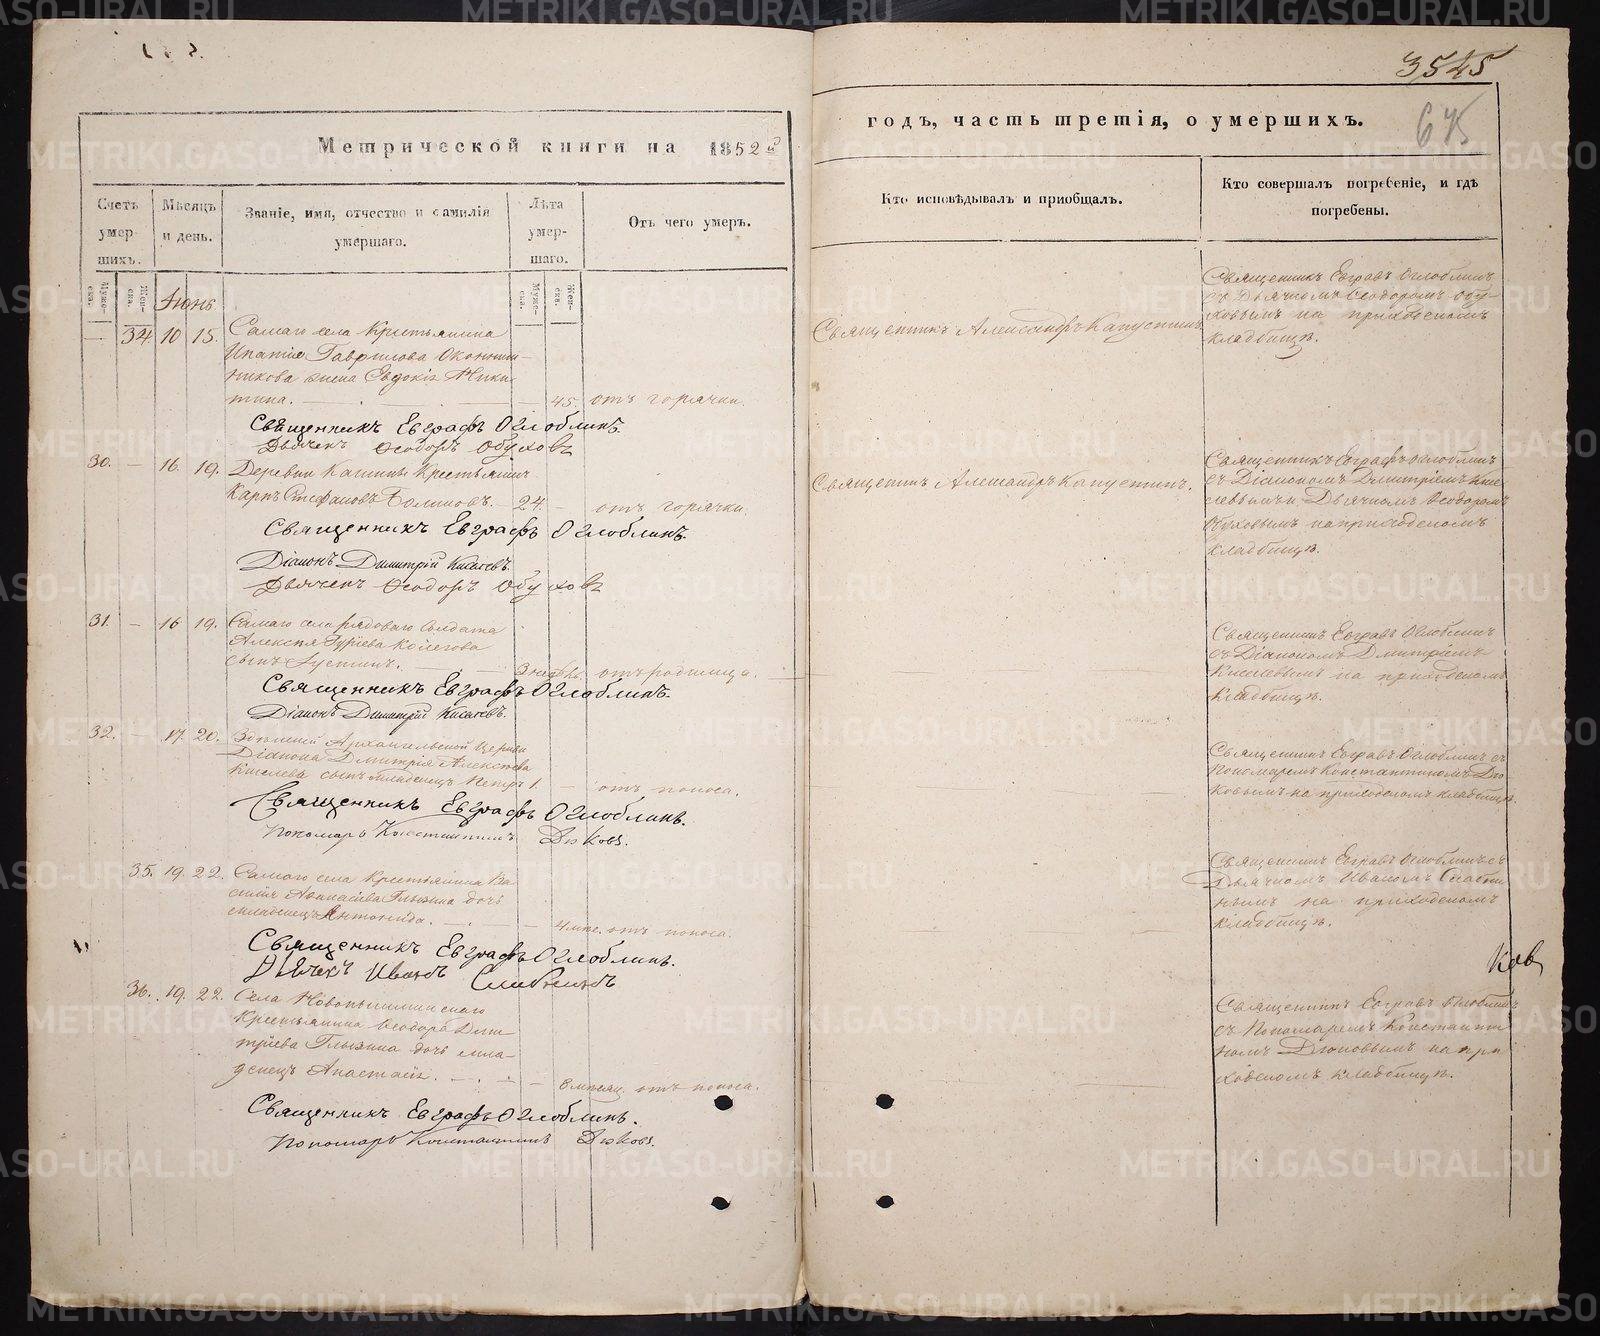 3545
645
Метрической книги на 1852й
годъ, часть третія, о умершихъ.
Счетъ умершихъ.
Мѣсяцъ и день.
Званіе, имя, отчество и фамилія умершаго.
Лѣта умершаго.
Отъ чего умеръ.
Кто исповѣдывалъ и приобщалъ.
Кто совершалъ погребеніе, и гдѣ погребены.
Мужеска.
Женска.
Мужеска.
Женска.
Іюнь
— 34 10 15. Самаго села Крестьянина
Ипатія Гаврилова Оконишникова
жена Евдокія Никитина.
— 45. отъ горячки.
Священникъ Александръ Капустинъ
Священникъ Евграфъ Оглоблинъ
съ Дьячкомъ Ѳеодоромъ Обуховымъ
на приходскомъ
кладбищѣ.
Священникъ Евграфъ Оглоблинъ.
Дьячекъ Ѳеодоръ Обуховъ
30. — 16. 19. Деревни Крестьянинъ
Карпъ Стефановъ 24. — отъ горячки.
Священникъ Александръ Капустинъ.
Священникъ Евграфъ Оглоблинъ
съ Діакономъ Димитріемъ Киселевымъ
и Дьячкомъ Ѳеодоромъ
Обуховымъ на приходскомъ
кладбищѣ.
Священникъ Евграфъ Оглоблинъ.
Діаконъ Димитрій Киселевъ.
Дьячекъ Ѳеодоръ Обуховъ
31. — 16 19. Самаго села рядоваго Солдата
Алексѣя Гуріева
сынъ Іустинъ. — отъ родимца.
Священникъ Евграфъ Оглоблинъ
съ Діакономъ Димитріемъ
Киселевымъ на приходскомъ
кладбищѣ.
Священникъ Евграфъ Оглоблинъ.
Діаконъ Димитрій Киселевъ.
32. — 17. 20. Архангельской Церкви
Діакона Димитрія Алексѣева
Киселева сынъ младенецъ Петръ 1. — отъ поноса.
Священникъ Евграфъ Оглоблинъ съ
Пономаремъ Константиномъ Дюковымъ
на приходскомъ кладбищѣ.
Священникъ Евграфъ Оглоблинъ.
Пономарь Константинъ Дюковъ.
35. 19. 22. Самаго села Крестьянина Василія
Аѳанасіева Глызина дочь
младенецъ Антонида. — 4 мѣс. отъ поноса.
Священникъ Евграфъ Оглоблинъ съ
Дьячкомъ Иваномъ
на приходскомъ
кладбищѣ.
Священникъ Евграфъ Оглоблинъ.
Дьячекъ Иванъ
ков
36. 19. 22. Села Новопышминскаго
Крестьянина Ѳеодора Димитріева
Глызина дочь младенецъ
Анастасія. — 8 мѣсяц. отъ поноса.
Священникъ Евграфъ Оглоблинъ
съ Пономаремъ Константиномъ
Дюковымъ на приходскомъ
кладбищѣ.
Священникъ Евграфъ Оглоблинъ.
Пономарь Константинъ Дюковъ.
METRIKI.GASO-URAL.RU